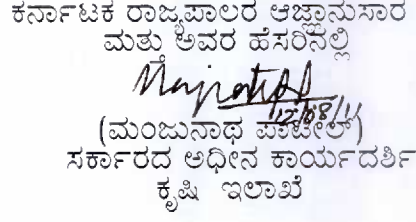 ಕರ್ನಾಟಕ ರಾಜ್ಯಪಾಲರ ಆಜ್ಞಾನುಸಾರ
ಮತ್ತು ಅವರ ಹೆಸರಿನಲ್ಲಿ
12/08/11
(ಮಂಜುನಾಥ ಪಾಟೀಲ್)
ಸರ್ಕಾರದ ಅಧೀನ ಕಾರ್ಯದರ್ಶಿ
ಕೃಷಿ ಇಲಾಖೆ